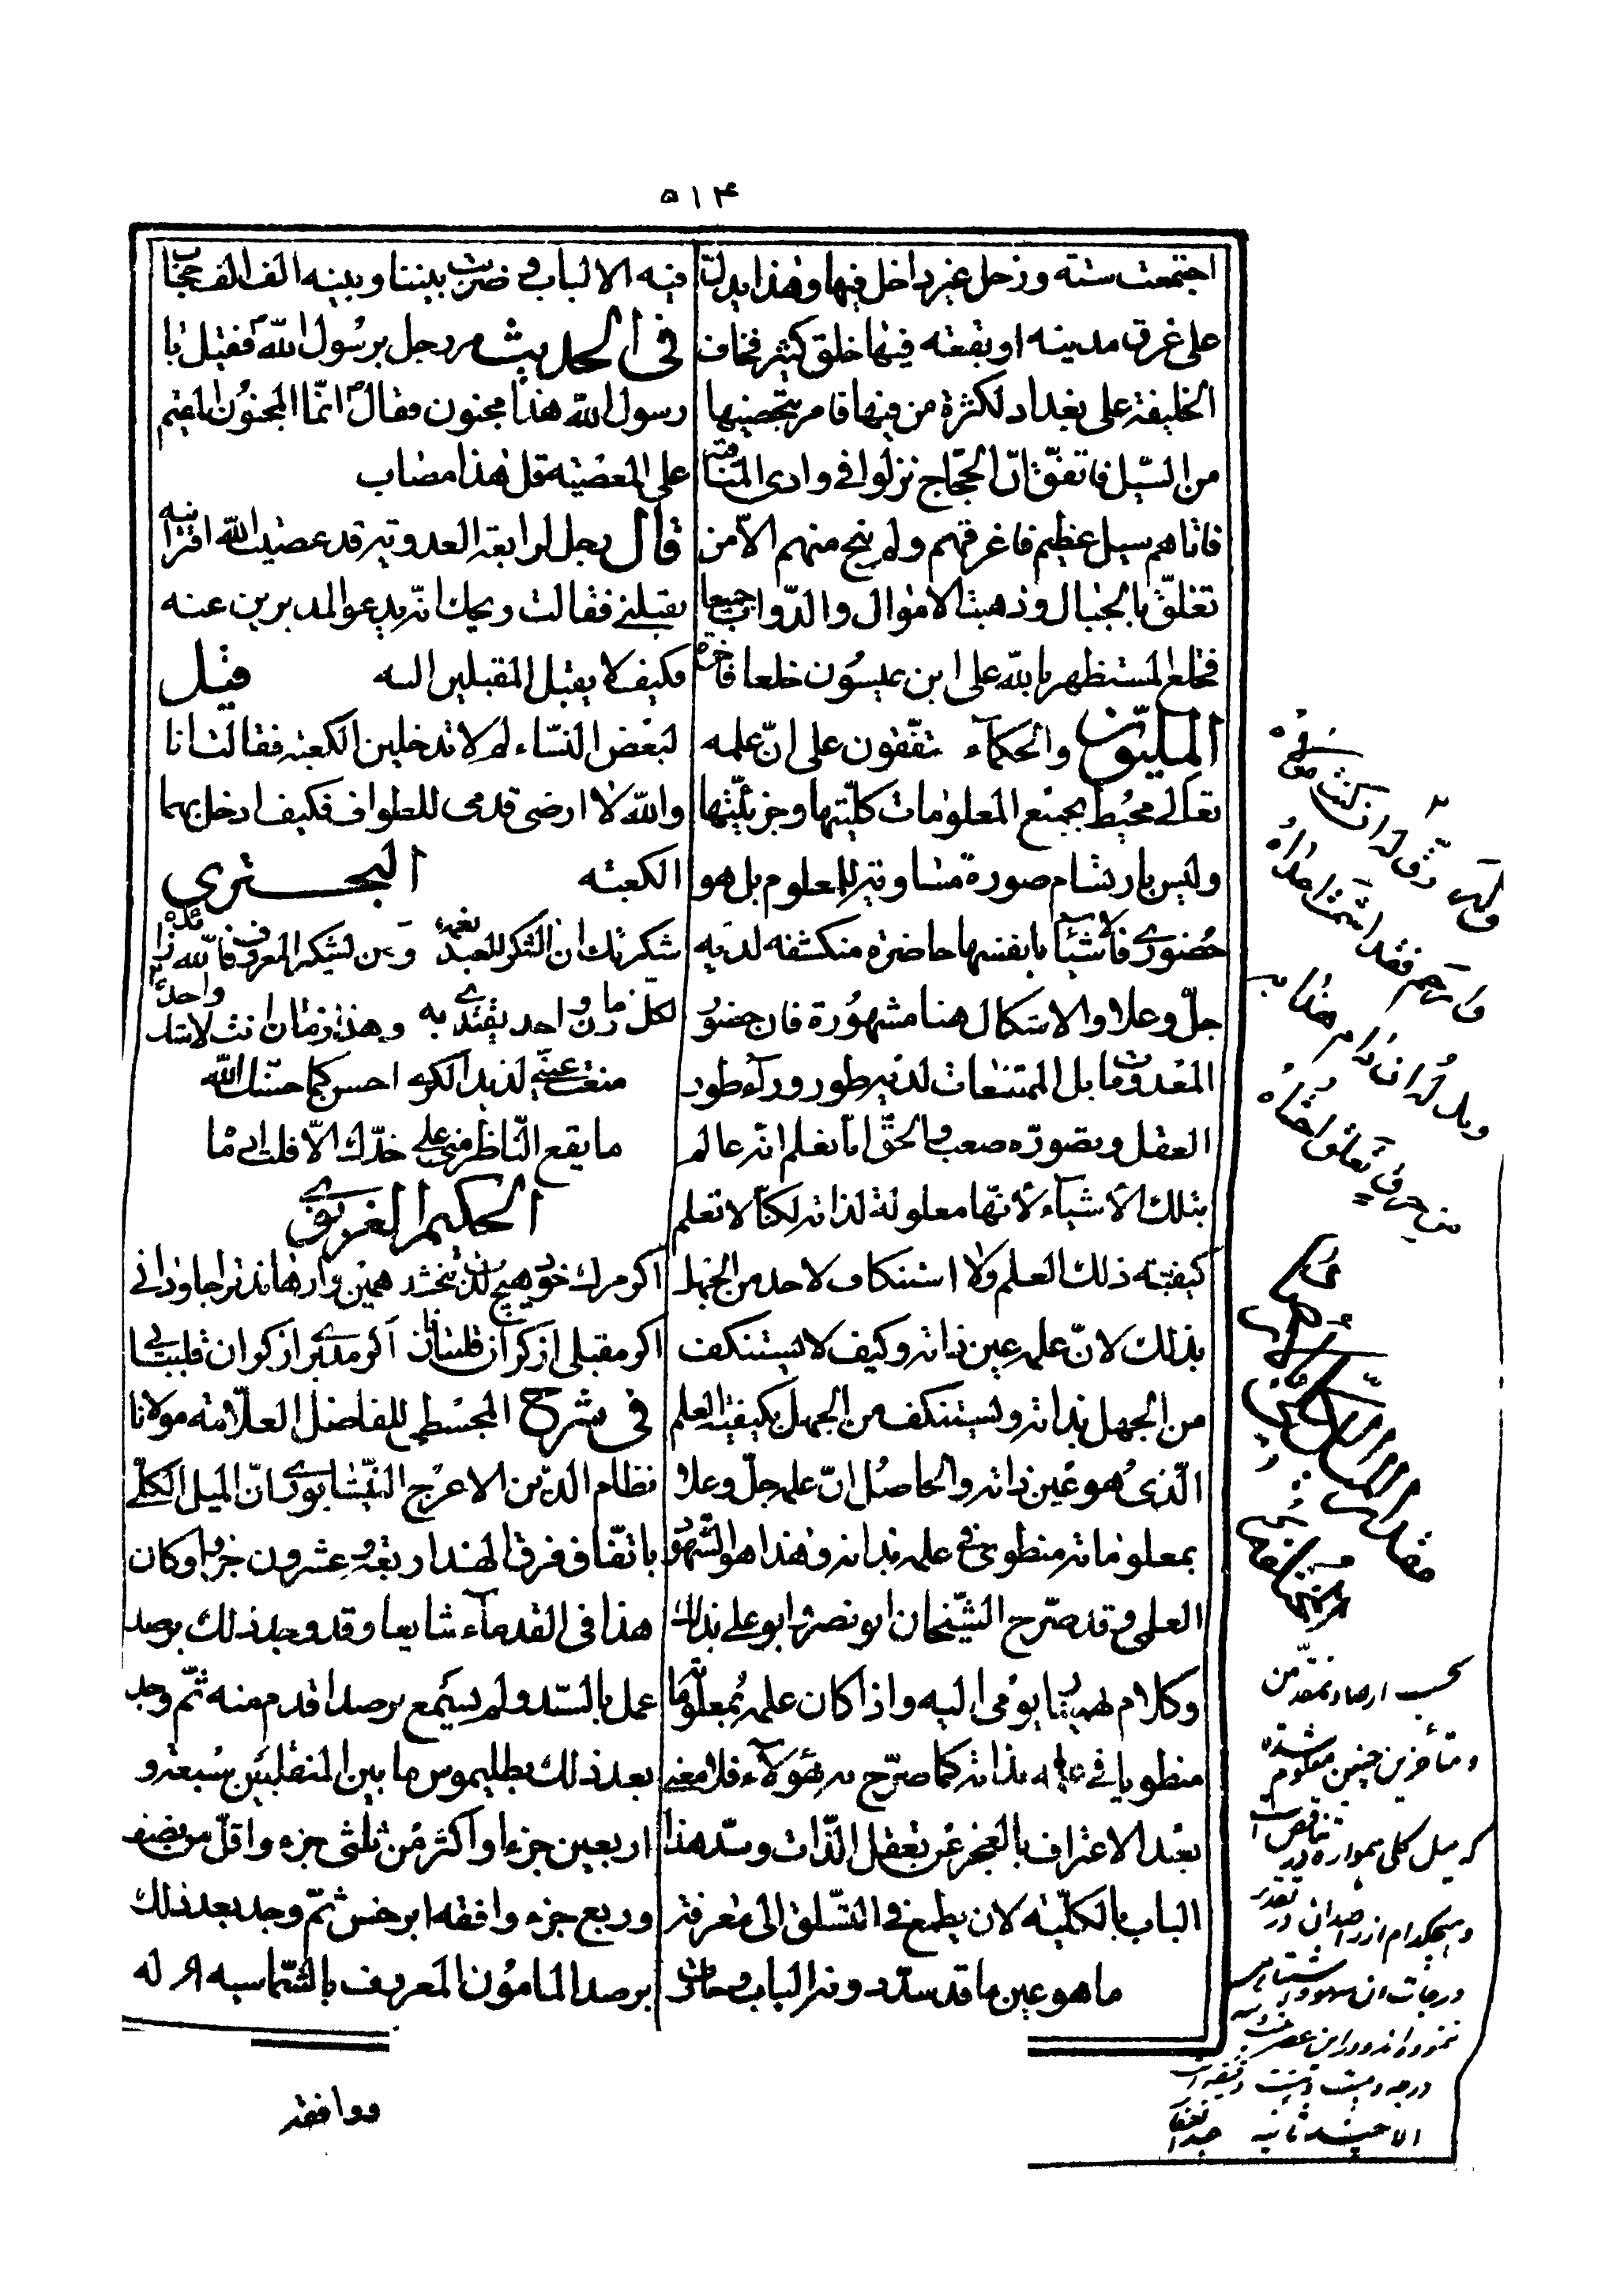 ۵۱۴
اجتمعت ستة وزحل غير داخل فيها وهذا يدلّ
على غرق مدينة او بقعة فيها خلق كثير فخاف
الخليفة على بغداد لكثرة من فيها فامر بتحصينها
من السّيل فاتفق انّ الحجّاج نزلوا في وادى المناقب
فاتاهم سيل عظيم فاغرقهم ولم ينج منهم الاّ من
تعلّق بالجبال وذهبت الاموال والدّواب جميعا
فخلع المستظهر بالله على ابن عيسون خلعا فاخره
المليّون والحكمآء متّفقون على انّ علمه
تعالى محيط بجميع المعلومات كلّيتها وجزئيّتها
وليس بارتسام صورة مساوية للمعلوم بل هو
حضورى فالاشيآء بانفسها حاضرة منكشفه لديه
جلّ وعلا والاشكال هنا مشهورة فان حضور
المعدومات بل الممتنعات لديه طور ورآء طور
العقل وتصوّره صعب والحقّ انا نعلم انه عالم
بتلك الاشيآء لانّها معلولة لذاته لكنّا لا نعلم
كيفيّة ذلك العلم ولا استنكاف لاحد من الجهل
بذلك لانّ علمه عين ذاته وكيف لا يستنكف
من الجهل بذاته ويستنكف من الجهل بكيفية العلم
الّذى هو عين ذاته والحاصل انّ علمه جلّ وعلا
بمعلوماته منطو في علمه بذاته وهذا هو الشهود
العلمى وقد صرّح الشّيخان ابو نصر وابو على بذلك
وكلام يومى اليه واذا كان علمه بمعلوماته
منطويا في علمه بذاته كما صرّح به هؤلآء فلا معنى
بعد الاعتراف بالعجز عن تعقل الذّات وسدّ هذا
الباب بالكلّية لان يطمع في التسّلق الى معرفة
ما هو عين ما قد سدّ دونه الباب
فيه الالباب في ضربت بيننا وبينه الف الف حجاب
فى الحديث مر رجل برسول الله ص فقيل يا
رسول الله هذا مجنون فقال انّما المجنون المقيم
على المعصية قل هذا مصاب
قال رجل لرابعة العدوية قد عصيت الله افترينه
يقبلني فقالت ويحك انّه يدعو المدبرين عنه
فكيف لا يقبل المقبلين اليه قيل
لبعض النّساء لم لا تدخلين الكعبة فقالت انا
والله لا ارضى قدمى للطواف فكيف ادخل بهما
الكعبة البحــترى
شكرتك ان الشكر للعبد نعمة ومن يشكر المعروف فالله زائده
لكلّ زمان واحد يقتدى به وهذا زمان انت لا شك واحده
منقت عينى لذيذ الكرى احسن كما حسّنك الله
ما يقع النّاظر منى على خدّك الاّ قلت اى ما
الحكيم الغزنوى
اكر مرك خود هيچ لذت نبخشد همين وارهاند ترا جاودانى
اكر مقبلى از كران قلتبانان اكر مدبرى از كران قلتبانى
فى شرح المجسطى للفاضل العلاّمة مولانا
نظام الدّين الاعرج النّيشابورى انّ الميل الكلّى
باتفاق فرق الهند اربعة وعشرون جزءا وكان
هذا فى القدمآء شايعا وقد وجد ذلك برصد
عمل بالسّند ولم يسمع برصد اقدم منه ثمّ وجد
بعد ذلك بطليموس ما بين المنقلبين سبعة و
اربعين جزءا واكثر من ثلثى جزء واقلّ من نصف
وربع جزء ووافقه ابرخس ثمّ وجد بعد ذلك
برصد المامون المعروف بالشّماسيه
ووافقه
بحسب ارصاد من
ومتأخرين چنين معلوم شده
كه ميل كلى همواره در تناقص است
وهيچكدام از راصدان در تقدير
درجات ان سهو واشتباهى
ننموده اند ودر اين عصر
درجه وبيست دقيقه
الا ثانيه